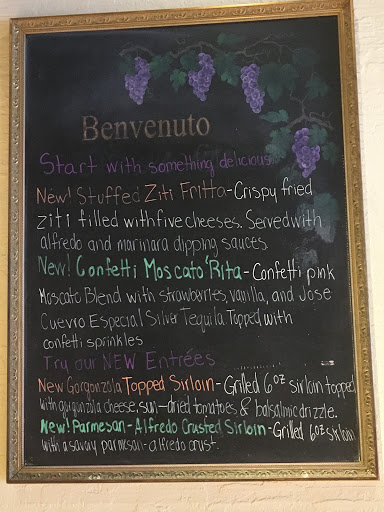 Benvenuto
Start with something delicious
New! Stuffed Ziti Fritta-Crispy fried
ziti filled with five cheeses. Served with
alfredo and marinara dipping sauces
New! Confetti Moscato 'Rita - Confetti pink
Moscato Blend with strawberries, vanilla, and Jose
Cuervo Especial Silver Tequila Topped with
confetti sprinkles
Try our NEW Entrées
New Gorgonzola Topped Sirloin - Grilled 6oz sirloin topped
with gorgonzola cheese, sun-dried tomatoes & balsalmic drizzle.
New! Parmesan-Alfredo Crusted Sirloin - Grilled 6oz sirloin
with a savory parmesan-alfredo crust.